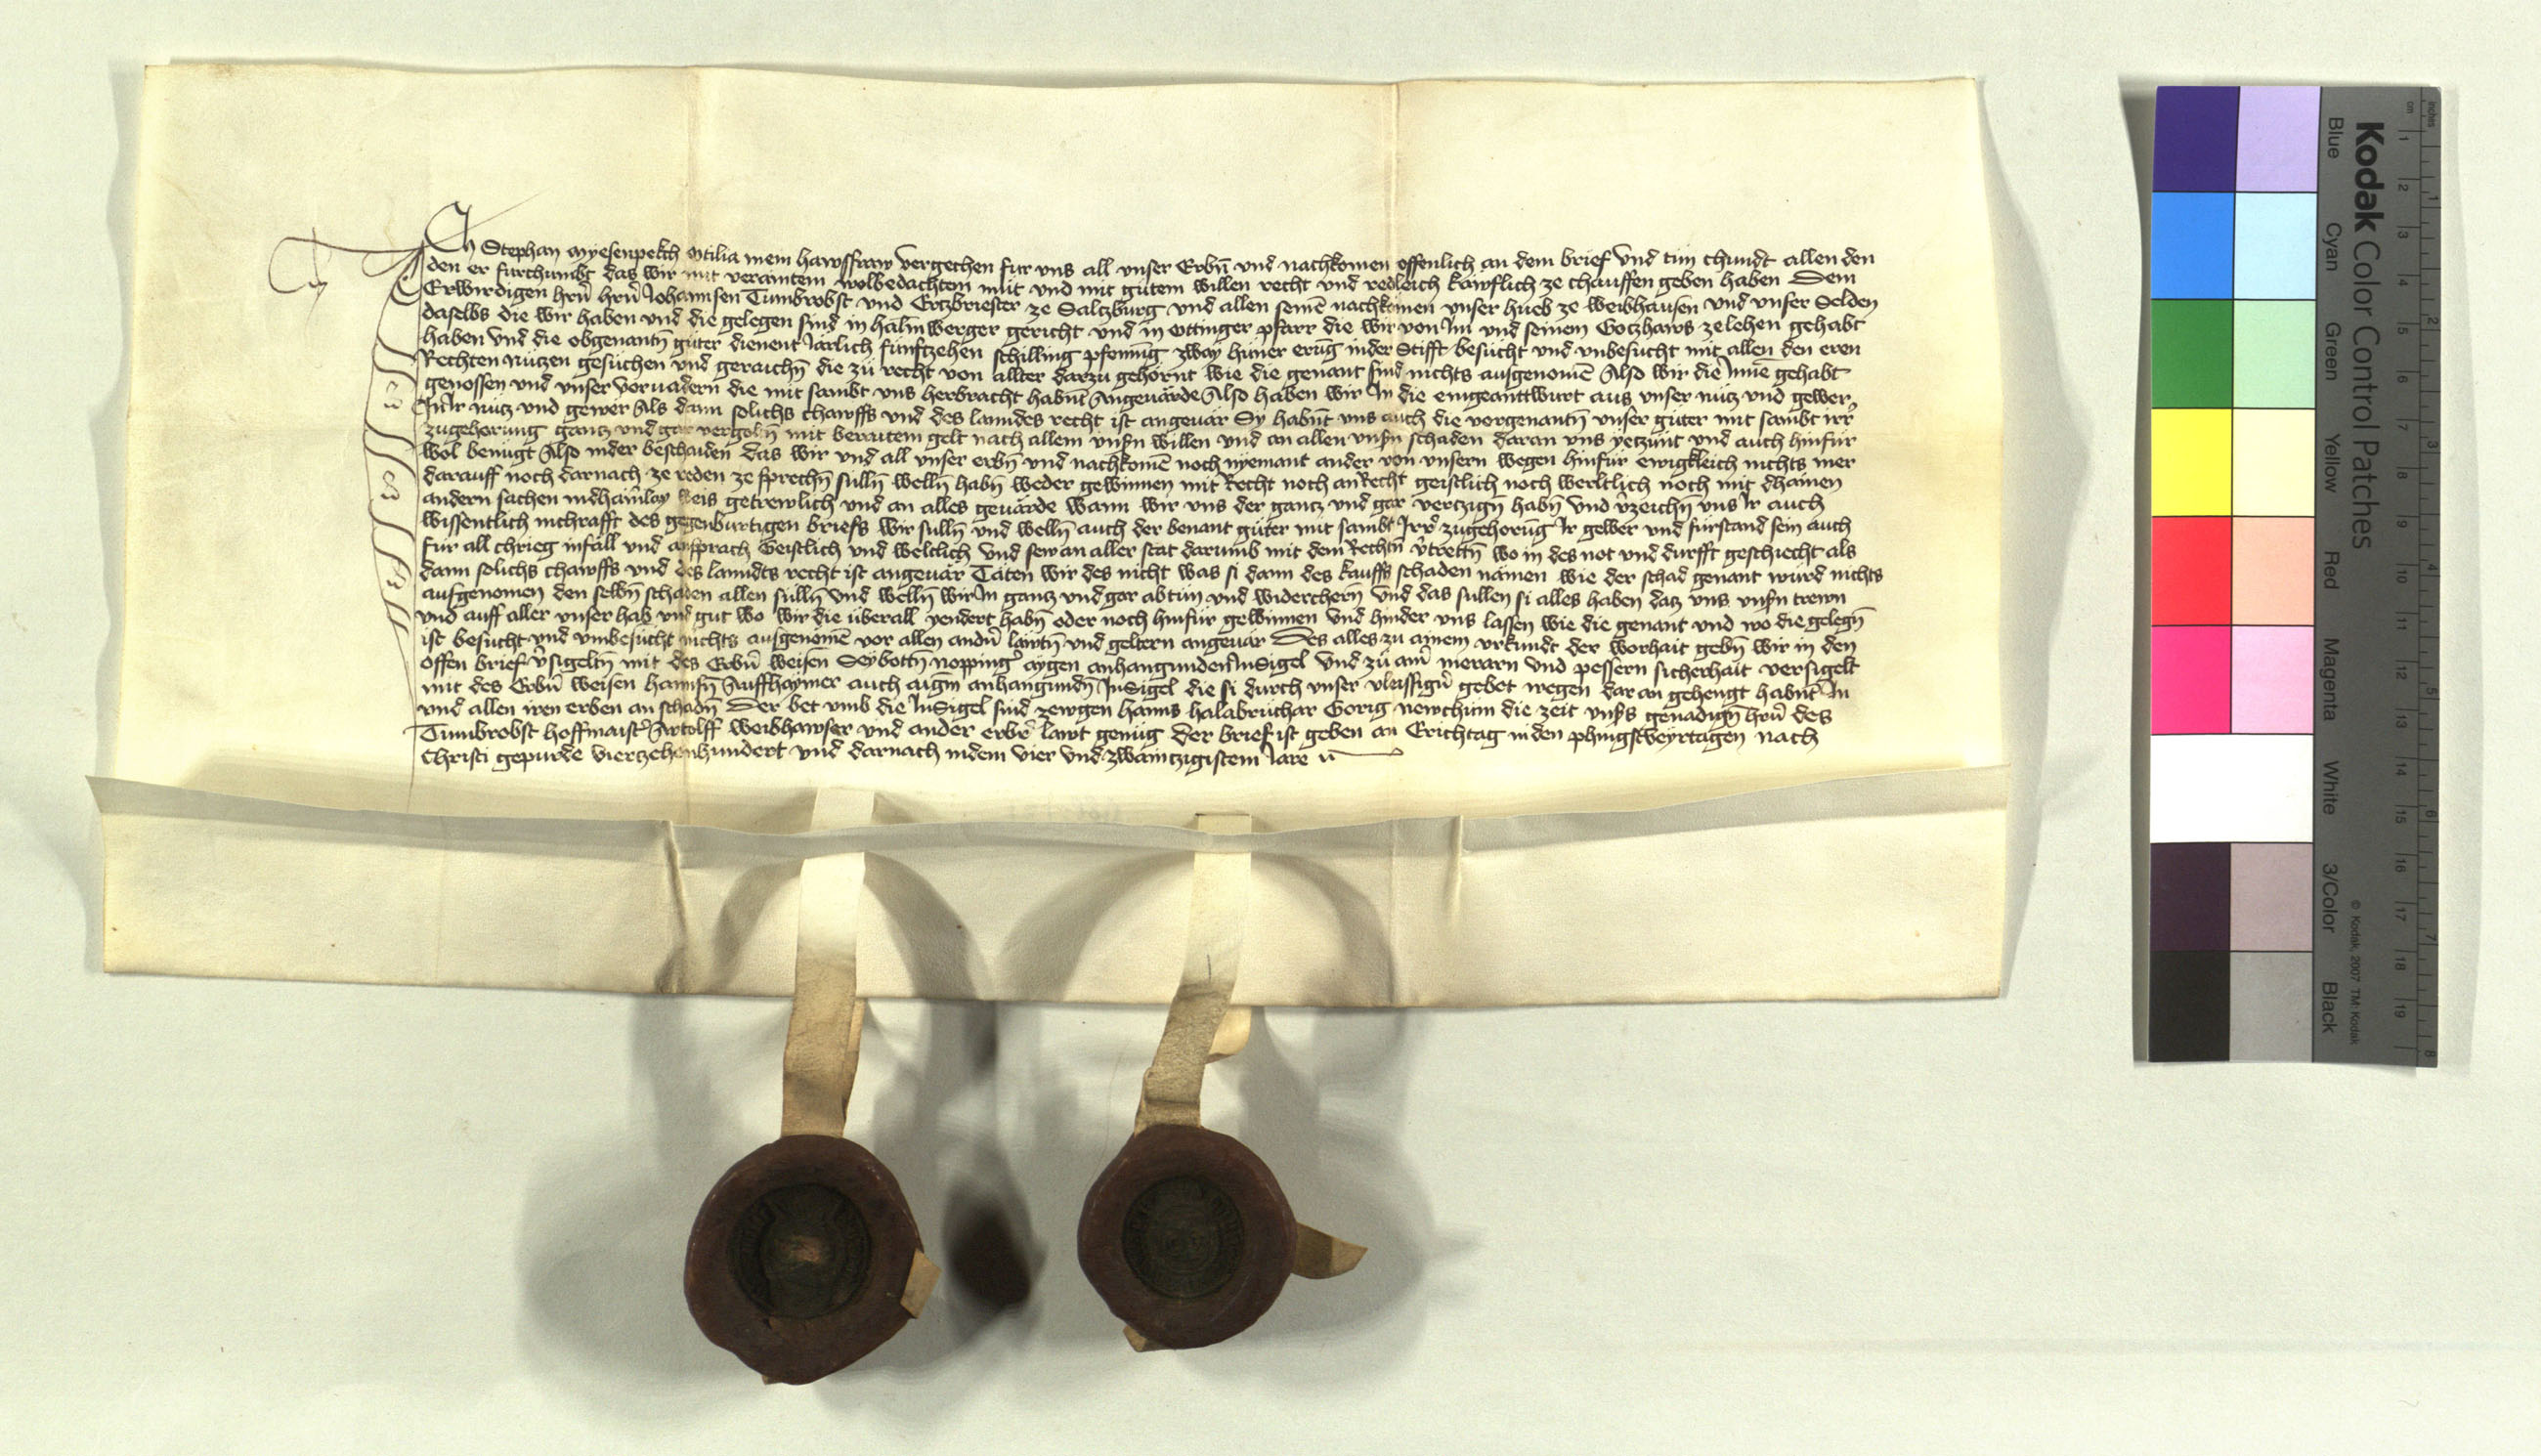 Ich Stephan Myesenpekch Otilia mein hawsfraw vergechen fur vns all vnser Erbn̄ vnd nachkomen offenlich an dem brief vnd tun chundt allen den
den er furchumbt das wir mit veraintem wolbedachten mut vnd mit gutem willen recht vnd redleich kawflich ze chauffen geben haben Dem
Erwirdigen hrn̄ hrn̄ Johannsen Tumbrobst vnd Ertzbriester ze Saltzburg vnd allen seinē nachkomen vnser hueb ze weibhausen vnd vnser Selden
daselbs die wir haben vnd die gelegen sind in halm̄werger gericht vnd in Ottinger pfarr die wir von Im vnd seinem Gotzhaws ze lehen gehabt
haben vnd die obgenantn̄ guter dienent Jarlich funftzehen schilling pfenning zway huner erūg in der Stifft besucht vnd vnbesucht mit allen den eren
Rechten nutzen gesuchen vnd geraichn̄ die zu recht von allter darzu gehornt wie die genant sind nichts ausgenomē Also wir die Inne gehabt
genossen vnd vnser voruadern die mit sambt vns herbracht habnt Angeuarde Also haben wir In die eingeanttwurt aus vnser nutz vnd gewer
In Ir nutz vnd gewer Als dann solichs chawffs vnd des lanndes recht ist angeuar Sy habnt vns auch die vorgenantn̄ vnser guter mit sambt irr
zugehorung gantz vnd gar vergoltn̄ mit beraitem gelt nach allem vnsn̄ willen vnd an allen vnsn̄ schaden daran vns yetzunt vnd auch hinfur
wol benugt Also in der beschaiden das wir vnd all vnser erbn̄ vnd nachkomē noch nyemant ander von vnsern wegen hinfur ewigkleich nichts mer
darauff noch darnach ze reden ze sprechn̄ sulln̄ welln̄ habn̄ weder gewinnen mit Recht noch an Recht geistlich noch werltlich noch mit dhainen
andern sachen in dhainlay weis getrewlich vnd an alles geuarde Wann wir vns der gantz vnd gar vertzign̄ habn̄ vnd v̄zeichn̄ vns Ir auch
wissentlich in chrafft des gegenburtigen briefs wir sulln̄ vnd welln̄ auch der benant guter mit sambt Irr zugehorūg Ir gewer vnd furstand sein auch
fur all chrieg infall vnd ansprach Geistlich vnd weltlich vnd sew an aller stat darumb mit dem Rechtn̄ v̄trettn̄ wo in des not vnd durfft geschiecht als
dann solichs chawffs vnd des lanndts recht ist angeuar Täten wir des nicht was si dann des kauffs schaden nämen wie der schad genant wurd nichts
ausgenomen den selbn̄ schaden allen sulln̄ vnd welln̄ wir In gantz vnd gar abtun vnd widerchern vnd das sullen si alles haben datz vns vnsn̄ trewn
vnd auff aller vnser hab vnd gut wo wir die uberall yendert habn̄ oder noch hinfur gewinnen vnd hinder vns lassen wie die genant vnd wo die gelegn̄
ist besucht vnd vmbesucht nichts ausgenomē vor allen andn̄ lawtn̄ vnd geltern angeuar Des alles zu ainem vrkundt der worhait gebn̄ wir in den
offen brief v̄sigeltn̄ mit des Erbn̄ weisen Seybottn̄ noppinḡ aygen anhangunden InSigel vnd zu ain̄ merarn vnd pessern sicherhait versigelt
mit des Erbn̄ weisen hannsn̄ Auffhaymer auch aigm̄ anhangundn̄ InSigel die si durch vnser vleissign̄ gebet wegen dar an gehengt habnt In
vnd allen iren erben an schadn̄ Der bet vmb die InSigel sind zewgen hanns halabruchar Gorig newchum die zeit vnsers genadign̄ hrn̄ des
Tumbrobst hoffmaistr̄ Artolff weibhawser vnd ander erbr̄ lawt genug Der brief ist geben an Erichtag in den phingstveyrtagen nach
Christi gepurde vierzehenhundert vnd darnach in dem vier vnd zwaintzigistem Jare
Kodak Color Control Patches
Blue Cyan Green Yellow Red Magenta White 3/Color Black
© Kodak, 2007 TM: Kodak
inches 1 2 3 4 5 6 7 8
cm 1 2 3 4 5 6 7 8 9 10 11 12 13 14 15 16 17 18 19